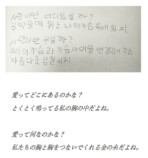 사랑이란 어디있을까?
두근두근 뛰는 나의 가슴속에 있지
사랑이란 무얼까?
우리의 가슴과 가슴 사이를 연결해주는
愛ってどこにあるのかな？
とくとく鳴ってる私の胸の中だよね。
愛って何なのかな？
私たちの胸と胸をつないでくれる金の糸だよね。